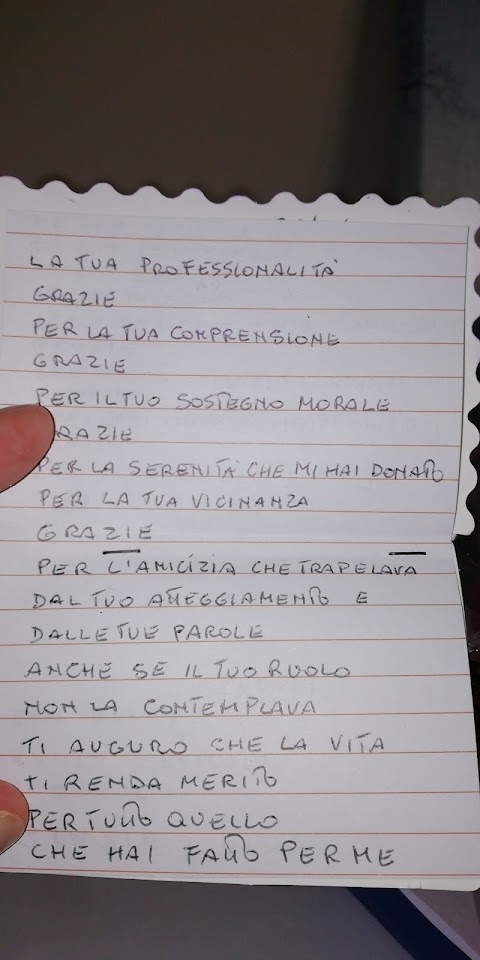 LA TUA PROFESSIONALITÀ
GRAZIE
PER LA TUA COMPRENSIONE
GRAZIE
PER IL TUO SOSTEGNO MORALE
GRAZIE
PER LA SERENITÀ CHE MI HAI DONATO
PER LA TUA VICINANZA
GRAZIE
PER L'AMICIZIA CHE TRAPELAVA
DAL TUO ATTEGGIAMENTO E
DALLE TUE PAROLE
ANCHE SE IL TUO RUOLO
NON LA CONTEMPLAVA
TI AUGURO CHE LA VITA
TI RENDA MERITO
PER TUTTO QUELLO
CHE HAI FATTO PER ME